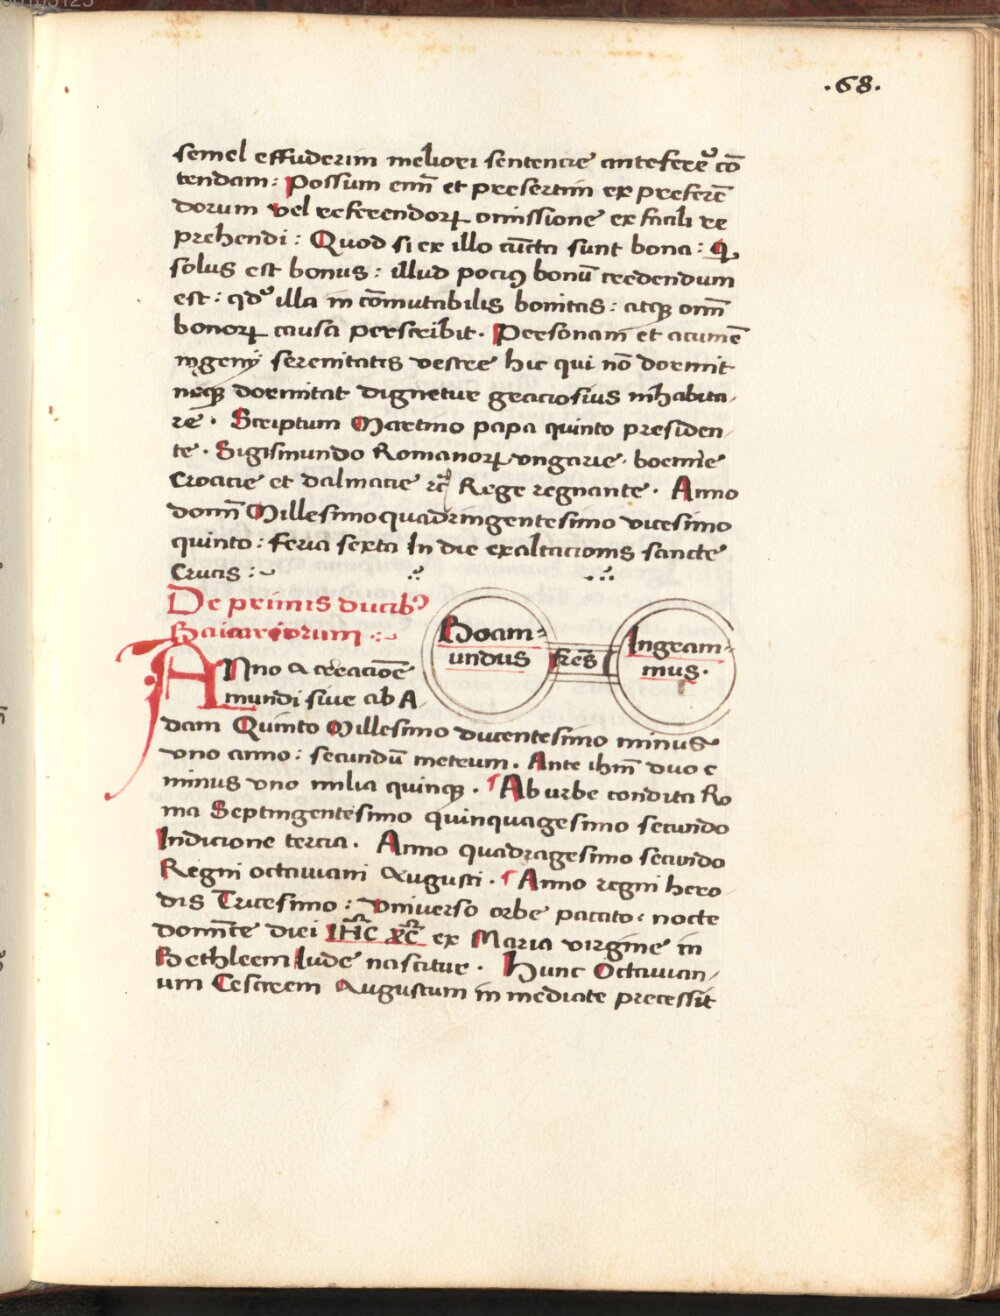 .68.
semel effuderim meliori sentencie anteferre᷑ cō
tendam: Possum em̄ et presertim ex preferē
dorum vel referendoꝝ omissione ex facili re
prehendi: Quod si ex illo cūcta sunt bona: Qꝫ
solus est bonus: illud pociꝰ bonū credendum
est: qd᷑ illa in cōmutabilis bonitas: atqꝫ om̄
bonoꝝ causa perscribit. Personam et acumē
ingenÿ serenitatis vestre hic qui nō dormit
neqꝫ dormitat dignetur graciosius inhabita
re. Scriptum Martino papa quinto presiden
te. Sigismundo Romanoꝝ vngarie. boemie
Croacie et dalmacie rc̄ Rege regnante. Anno
dom̄ Millesimoquadringentesimo vicesimo
quinto: feria sexta In die exaltacionis sancte
Crucis:
De primis ducibꝰ
Baiarioorum:
Boam=
undus
fr̄es
Ingram=
mus.
ANno a creacioē
mundi siue ab A
dam Quinto Millesimo ducentesimo minus
vno anno: secundū meteum. Ante ih̄m duo c
minus vno milia quinqꝫ. Ab urbe condita Ro
ma Septingentesimo quinquagesimo secundo
Indicione tercia. Anno quadragesimo secundo
Regni octauiani Augusti. Anno regni hero
dis Tricesimo: vniuerso orbe pacato: nocte
domīce diei IH̄C XC̄ ex Maria virgine in
Bethleem Iude nascitur. Hunc Octauian
um Cesarem Augustum in mediate precessit